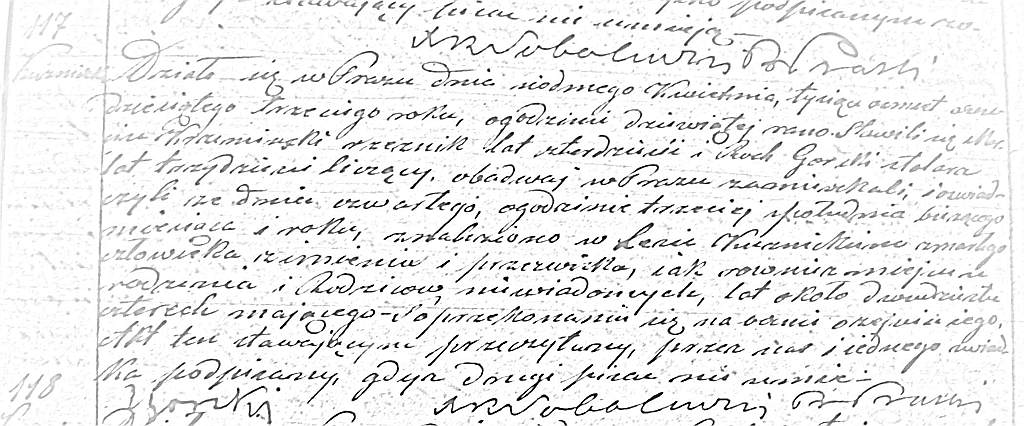 117
podpisanym
stawający pisać nie umieją
X R Sobolewski P. Praski
Działo się w Prazu dnia siodmego Kwietnia, tysiąc osmset
dziesiątego trzeciego roku, o godzinie dziewiątej rano. Stawili się
Krzeminski rzeznik lat czterdzieści i Roch Gorski stolarz
lat trzydzieści liczący, obadwaj w Prazu zamieszkali, i oswiad-
czyli ze dnia czwartego, o godzinie trzeciej z południa bieżącego
miesiąca i roku, znaleziono w Lesie zmarłego
człowieka z imienia i przezwiska, iak rownie z miejsca
rodzenia i Rodzicow niewiadomych, lat około dwadzieścia
czterech mającego - Po przekonaniu się naocznie o zejściu jego,
Akt ten stawającym przeczytany, przez nas i jednego swiad-
ka podpisany, gdyż drugi pisać nie umie -
118
X R Sobolewski P. Praski